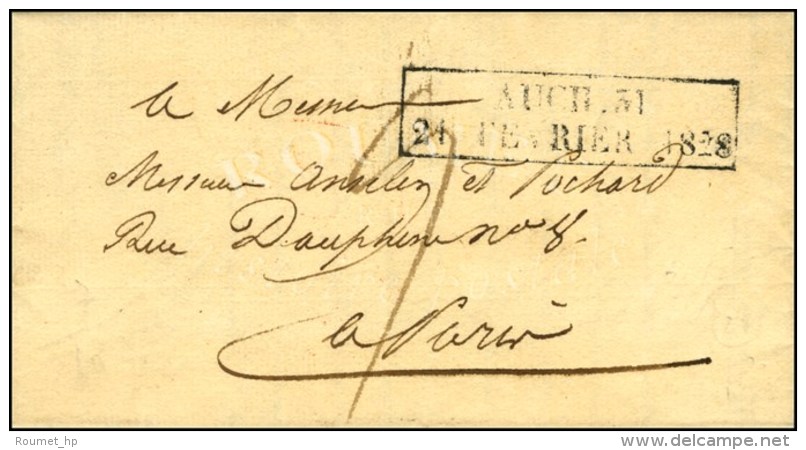 AUCH .31
21 FEVRIER 1828
a Messieu
Messieurs Anselin et Pochard
Rue Dauphine no 8.
a Paris
Roumet_hp
delcampe.net